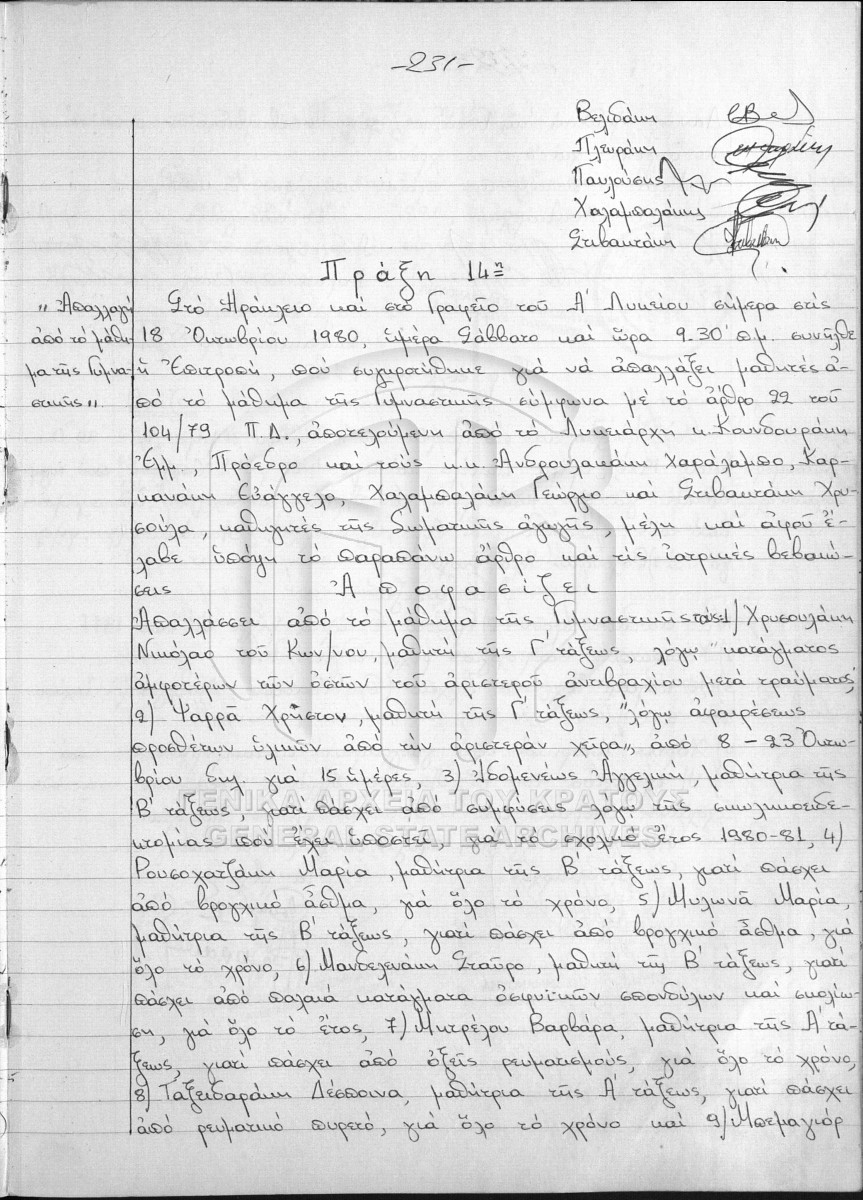 -231-
Βελιδάκη
Πλευράκη
Παυλούσης
Χαλαμπαλάκης
Στιβακτάκη
Πράξη 14η
„ Ἀπαλλαγή
ἀπό τό μάθη-
μα τῆς Γυμνα-
στικῆς „
Στό Ἡράκλειο καί στό Γραφεῖο τοῦ Α' Λυκείου σήμερα στίς
18 Ὀκτωβρίου 1980, ἡμέρα Σάββατο καί ὥρα 9.30' π.μ. συνῆλθε
ἡ Ἐπιτροπή, πού συγκροτήθηκε γιά νά ἀπαλλάξει μαθητές ἀ-
πό τό μάθημα τῆς Γυμναστικῆς σύμφωνα μέ τό ἄρθρο 22 τοῦ
104/79 Π.Δ., ἀποτελούμενη ἀπό τό Λυκειάρχη κ. Κουνδουράκη
Ἐμμ., Πρόεδρο καί τούς κ.κ. Ἀνδρουλακάκη Χαράλαμπο, Καρ-
κανάκη Εὐάγγελο, Χαλαμπαλάκη Γεώργιο καί Στιβακτάκη Χρυ-
σούλα, καθηγητές τῆς Σωματικῆς ἀγωγῆς, μέλη καί ἀφοῦ ἔ-
λαβε ὑπόψη τό παραπάνω ἄρθρο καί τίς ἰατρικές βεβαιώ-
σεις Ἀποφασίζει
Ἀπαλλάσσει ἀπό τό μάθημα τῆς Γυμναστικῆς τούς: 1) Χρυσουλάκη
Νικόλαο τοῦ Κων/νου, μαθητή τῆς Γ' τάξεως, λόγῳ "κατάγματος
ἀμφοτέρων τῶν ὀστῶν τοῦ ἀριστεροῦ ἀντιβραχίου μετά τραύματος",
2) Ψαρρᾶ Χρῆστον, μαθητή τῆς Γ' τάξεως, "λόγῳ ἀφαιρέσεως
προσθέτων ὑλικῶν ἀπό τήν ἀριστεράν χεῖρα", ἀπό 8 - 23 Ὀκτω-
βρίου δηλ. γιά 15 ἡμέρες, 3) Ἰδομενέως Ἀγγελική, μαθήτρια τῆς
Β' τάξεως, γιατί πάσχει ἀπό συμφύσεις λόγῳ τῆς σκωληκοειδε-
κτομίας πού ἔχει ὑποστεῖ, γιά τό σχολικό ἔτος 1980-81, 4)
Ρουσοχατζάκη Μαρία, μαθήτρια τῆς Β' τάξεως, γιατί πάσχει
ἀπό βρογχικό ἆσθμα, γιά ὅλο τό χρόνο, 5) Μυλωνᾶ Μαρία,
μαθήτρια τῆς Β' τάξεως, γιατί πάσχει ἀπό βρογχικό ἆσθμα, γιά
ὅλο τό χρόνο, 6) Μανδελενάκη Σταῦρο, μαθητή τῆς Β' τάξεως, γιατί
πάσχει ἀπό παλαιά κατάγματα ὀσφυϊκῶν σπονδύλων καί σκολίω-
ση, γιά ὅλο τό ἔτος, 7) Μητρέλου Βαρβάρα, μαθήτρια τῆς Α' τά-
ξεως, γιατί πάσχει ἀπό ὀξεῖς ρευματισμούς, γιά ὅλο τό χρόνο,
8) Ταξειδαράκη Δέσποινα, μαθήτρια τῆς Α' τάξεως, γιατί πάσχει
ἀπό ρευματικό πυρετό, γιά ὅλο τό χρόνο καί 9) Μπεμαγιόρ
ΓΕΝΙΚΑ ΑΡΧΕΙΑ ΤΟΥ ΚΡΑΤΟΥΣ
GENERAL STATE ARCHIVES